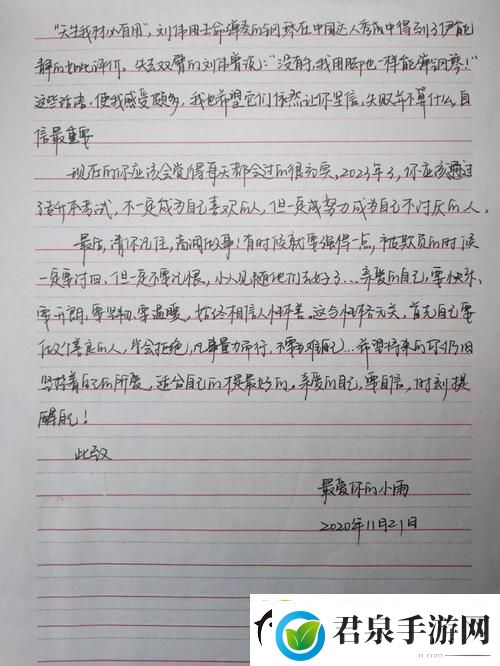 "天生我材必有用", 刘伟用生命弹奏的钢琴在中国达人秀中得到了伊能
静的如此评价, 失去双臂的刘伟曾说:"没有手, 我用脚也一样能弹钢琴!"
这些话语, 使我感受颇多, 我也希望它们依然让你坚信, 失败并不算什么, 自
信最重要
现在的你应该会觉得每天都会过的很充实, 2023年了, 你应该通过
专升本考试, 不一定成为自己喜欢的人, 但一定成努力成为自己不讨厌的人。
最后, 请你记住, 高调做事! 有时候就要强得一点, 被欺负的时候
一定要讨回, 但一定不要记恨, 小人见随他们去好了…亲爱的自己, 要快乐、
要开朗、要坚韧、要温暖, 始终相信人性本善。这与性格无关, 首先自己要
做个善良的人, 学会拒绝, 凡事量力而行, 不要为难自己…希望将来的你仍旧
坚持着自己的所爱, 适合自己的才是最好的。亲爱的自己, 要自信, 时刻提
醒自己!
此致
最爱你的小雨
2020年11月21日
君泉手游网